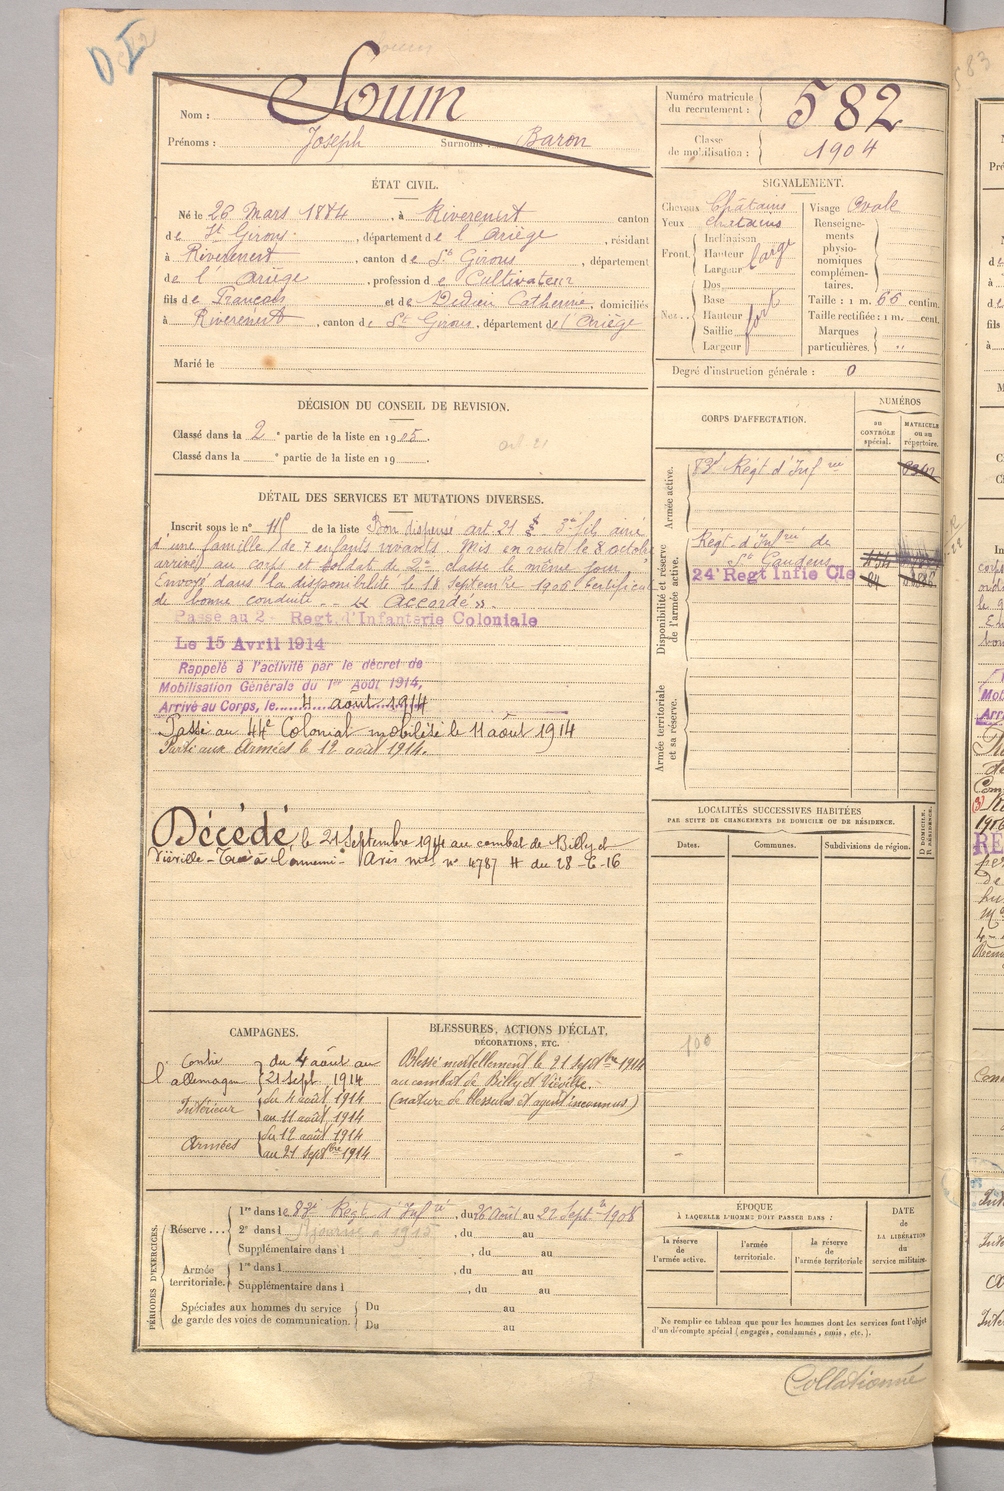 D I
Nom : Soum
Prénoms : Joseph Surnoms : Baron
Numéro matricule du recrutement : 582
Classe de mobilisation : 1904
ÉTAT CIVIL.
Né le 26 Mars 1884, à Riverenert canton
de St Girons, département de l'Ariège, résidant
à Riverenert, canton de St Girons, département
de l'Ariège, profession de Cultivateur
fils de François et de Dedieu Catherine, domiciliés
à Riverenert, canton de St Girons, département de l'Ariège
Marié le
SIGNALEMENT.
Cheveux Châtains
Yeux chatains
Front. Inclinaison
Hauteur
Largeur large
Nez. Dos
Base
Hauteur fort
Saillie
Largeur
Visage Ovale
Renseignements physionomiques complémentaires.
Taille : 1 m. 66 centim.
Taille rectifiée : 1 m. cent.
Marques particulières. "
Degré d'instruction générale : 0
DÉCISION DU CONSEIL DE REVISION.
Classé dans la 2e partie de la liste en 1905.
Classé dans la e partie de la liste en 19 .
art 21
DÉTAIL DES SERVICES ET MUTATIONS DIVERSES.
Inscrit sous le n° de la liste Bon dispensé art. 21 § 3e fils aîné
d'une famille de 7 enfants vivants. Mis en route le 8 octobre
arrivé au corps et soldat de 2e classe le même jour.
Envoyé dans la disponibilité le 18 Septembre 1906 Certificat
de bonne conduite "Accordé".
Passé au 2 Regt d'Infanterie Coloniale
Le 15 Avril 1914
Rappelé à l'activité par le décret de
Mobilisation Générale du 1er Août 1914,
Arrivé au Corps, le 4 août 1914
Passé au 44e Colonial mobilisé le 11 août 1914
Parti aux Armées le 12 août 1914.
Décédé, le 21 Septembre 1914 au combat de Billy et
Viéville - Tué à l'ennemi - Avis mel n° 4787 H du 28-6-16
CORPS D'AFFECTATION.
NUMÉROS
au CONTRÔLE spécial.
MATRICULE ou au répertoire.
Armée active.
83e Régt d'Infrie
Disponibilité et réserve de l'armée active.
Regt d'Infrie de
St Gaudens
24e Regt Infie Cle
Armée territoriale et sa réserve.
LOCALITÉS SUCCESSIVES HABITÉES
PAR SUITE DE CHANGEMENTS DE DOMICILE OU DE RÉSIDENCE.
Dates. Communes. Subdivisions de région. D DOMICILE. R RÉSIDENCE.
100
CAMPAGNES.
Contre l'allemagne du 4 août au
21 Sept 1914
Intérieur du 4 août 1914
au 11 août 1914
Armées du 12 août 1914
au 21 Septbre 1914
BLESSURES, ACTIONS D'ÉCLAT,
DÉCORATIONS, ETC.
Blessé mortellement le 21 Septbre 1914
au combat de Billy et Viéville.
(nature de blessures et agent inconnus)
PÉRIODES D'EXERCICES.
Réserve...
1re dans le 83e Régt d'Infrie, du 26 Août au 22 Sept. 1908
2e dans l , du au
Supplémentaire dans l , du au
Armée territoriale.
1re dans l , du au
Supplémentaire dans l , du au
Spéciales aux hommes du service de garde des voies de communication.
Du au
Du au
ÉPOQUE
À LAQUELLE L'HOMME DOIT PASSER DANS :
la réserve de l'armée active. l'armée territoriale. la réserve de l'armée territoriale
DATE de LA LIBÉRATION du service militaire.
Ne remplir ce tableau que pour les hommes dont les services font l'objet
d'un décompte spécial (engagés, condamnés, omis, etc.).
Collationné